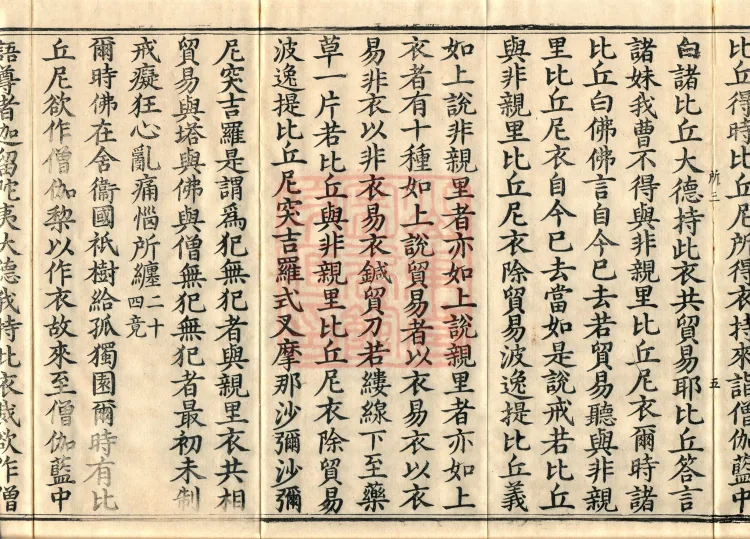 比丘得時比丘尼所得衣持來詣僧伽藍中
所三
五
白諸比丘大德持此衣共貿易耶比丘答言
諸妹我曹不得與非親里比丘尼衣爾時諸
比丘白佛佛言自今已去若貿易聽與非親
里比丘尼衣自今已去當如是說戒若比丘
與非親里比丘尼衣除貿易波逸提比丘義
如上說非親里者亦如上說親里者亦如上
衣者有十種如上說貿易者以衣易衣以衣
易非衣以非衣易衣鍼貿刀若縷線下至藥
草一片若比丘與非親里比丘尼衣除貿易
波逸提比丘尼突吉羅式叉摩那沙彌沙彌
尼突吉羅是謂為犯無犯者與親里衣共相
貿易與塔與佛與僧無犯無犯者最初未制
戒癡狂心亂痛惱所纏二十四竟
爾時佛在舍衞國祇樹給孤獨園爾時有比
丘尼欲作僧伽黎以作衣故來至僧伽藍中
語尊者迦留陀夷大德我持此衣財欲作僧